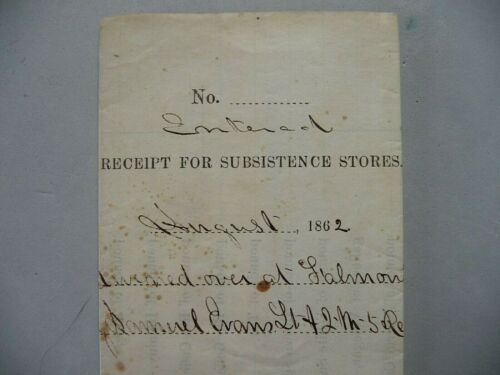 No. ............
Entered
RECEIPT FOR SUBSISTENCE STORES.
August, 1862.
turned over at Falmou
Samuel Evans Lt & 2. M. 5 Re